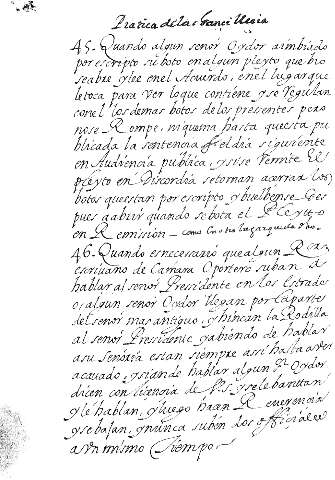 Pratica de la chancilleria
45 - Quando algun señor Oydor a imbiado
por escripto su boto en algun pleyto que no
se abre y lee en el Acuerdo, en el lugar que
le toca para ver lo que contiene y se regulan
con el los demas botos de los presentes pero
no se Rompe, ni quema hasta questa pu
blicada la sentencia el dia siguiente
en Audiencia publica, y si se remite el
pleyto en Discordia se tornan a cerrar los
botos questan por escripto y buelbense des
pues a abrir quando se bota el Pleyto
en Remission
46 - Quando es necesario que algun
escrivano de Camara O portero suban a
hablar al señor Presidente en los Estrados
o, algun señor Oydor llegan por la parte
del señor mas antiguo, y hincan la Rodilla
al señor Presidente y abiendo de hablar
a su señoria estan siempre assi hasta aver
acavado, y siendo hablar algun Oydor
dicen con licencia de y se lebantan
y le hablan, y luego hacen Reverencia
y se bajan, y nunca suben dos officiales
a un mismo tiempo